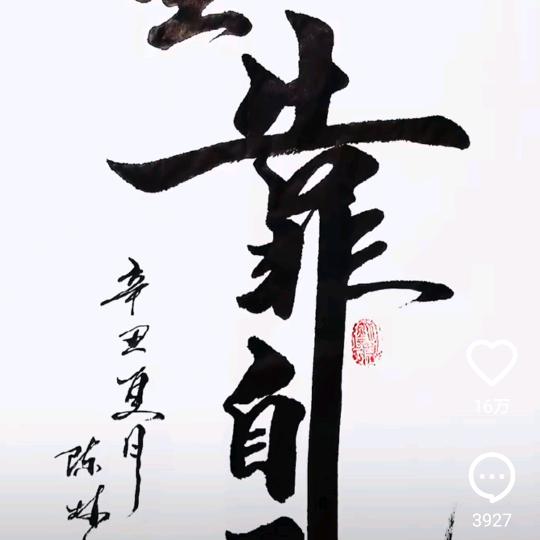 靠自
辛丑夏月
陈
16万
3927